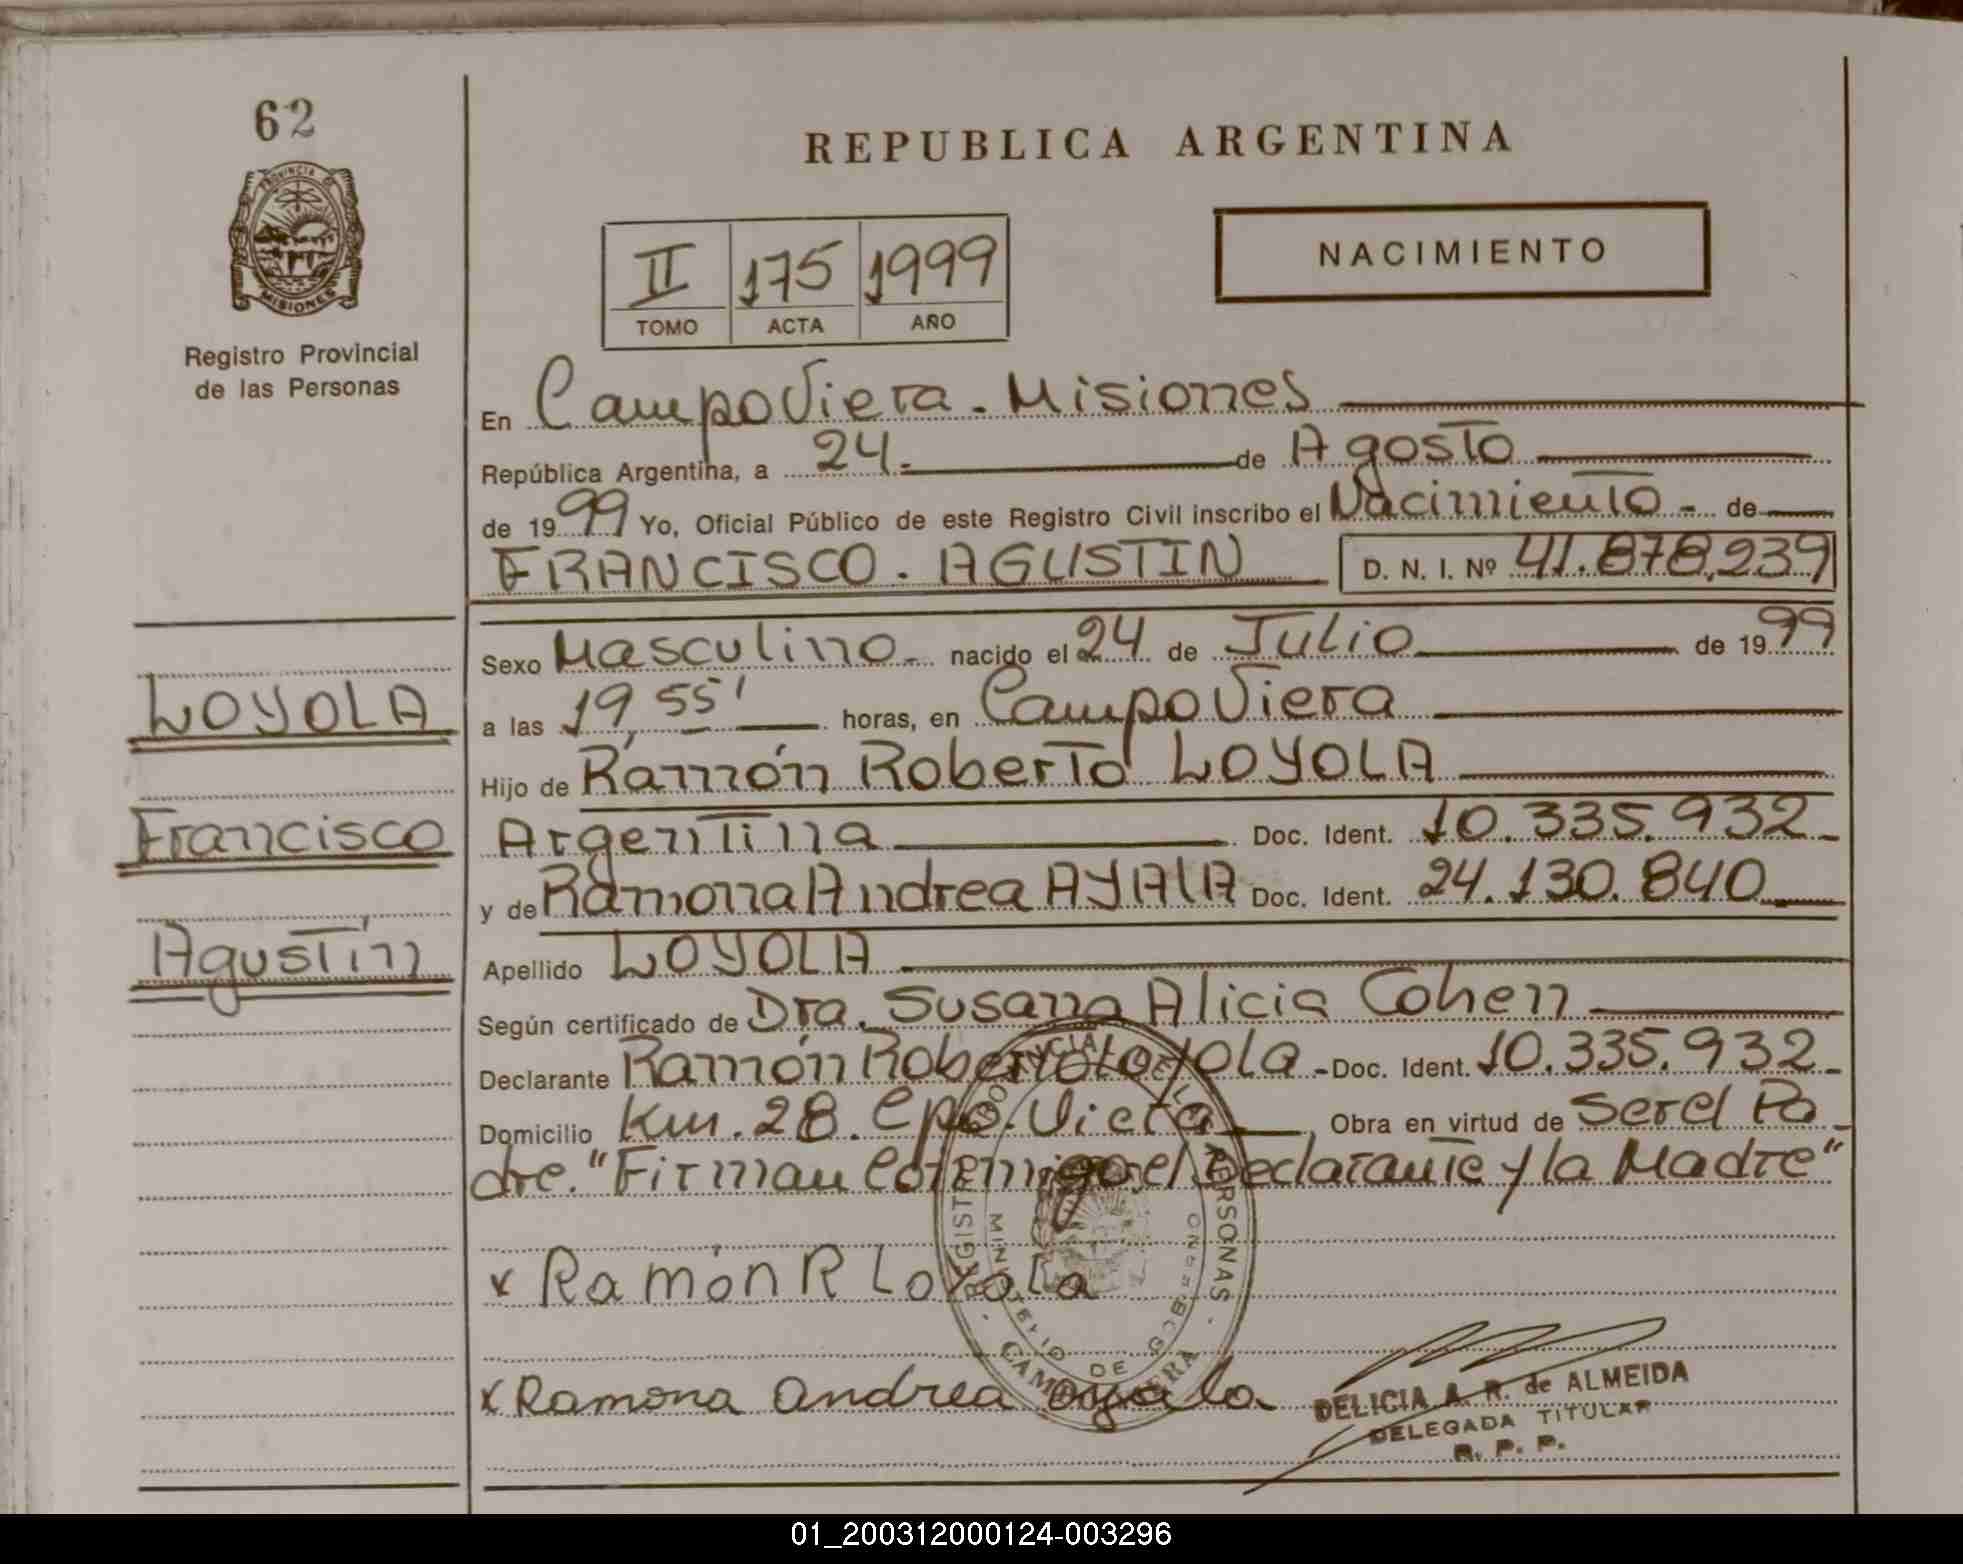 62
PROVINCIA DE
MISIONES
Registro Provincial
de las Personas
LOYOLA
Francisco
Agustín
REPUBLICA ARGENTINA
II 175 1999
TOMO ACTA AÑO
NACIMIENTO
En Campo Viera - Misiones
República Argentina, a 24 - de Agosto
de 1999 Yo, Oficial Público de este Registro Civil inscribo el Nacimiento - de
FRANCISCO . AGUSTIN D. N. I. Nº 41.878.239
Sexo Masculino - nacido el 24 de Julio de 1999
a las 19,55' horas, en Campo Viera
Hijo de Ramón Roberto LOYOLA
Argentina Doc. Ident. 10.335.932 -
y de Ramona Andrea AYALA Doc. Ident. 24.130.840
Apellido LOYOLA
Según certificado de Dra. Susana Alicia Cohen
Declarante Ramón Roberto Loyola - Doc. Ident. 10.335.932 -
Domicilio Km. 28. Cpo. Viera Obra en virtud de Ser el Pa-
dre. "Firman Conmigo el Declarante y la Madre"
x Ramón R Loyola
x Ramona Andrea Ayala
DELICIA A. R. de ALMEIDA
DELEGADA TITULAR
R. P. P.
01_200312000124-003296